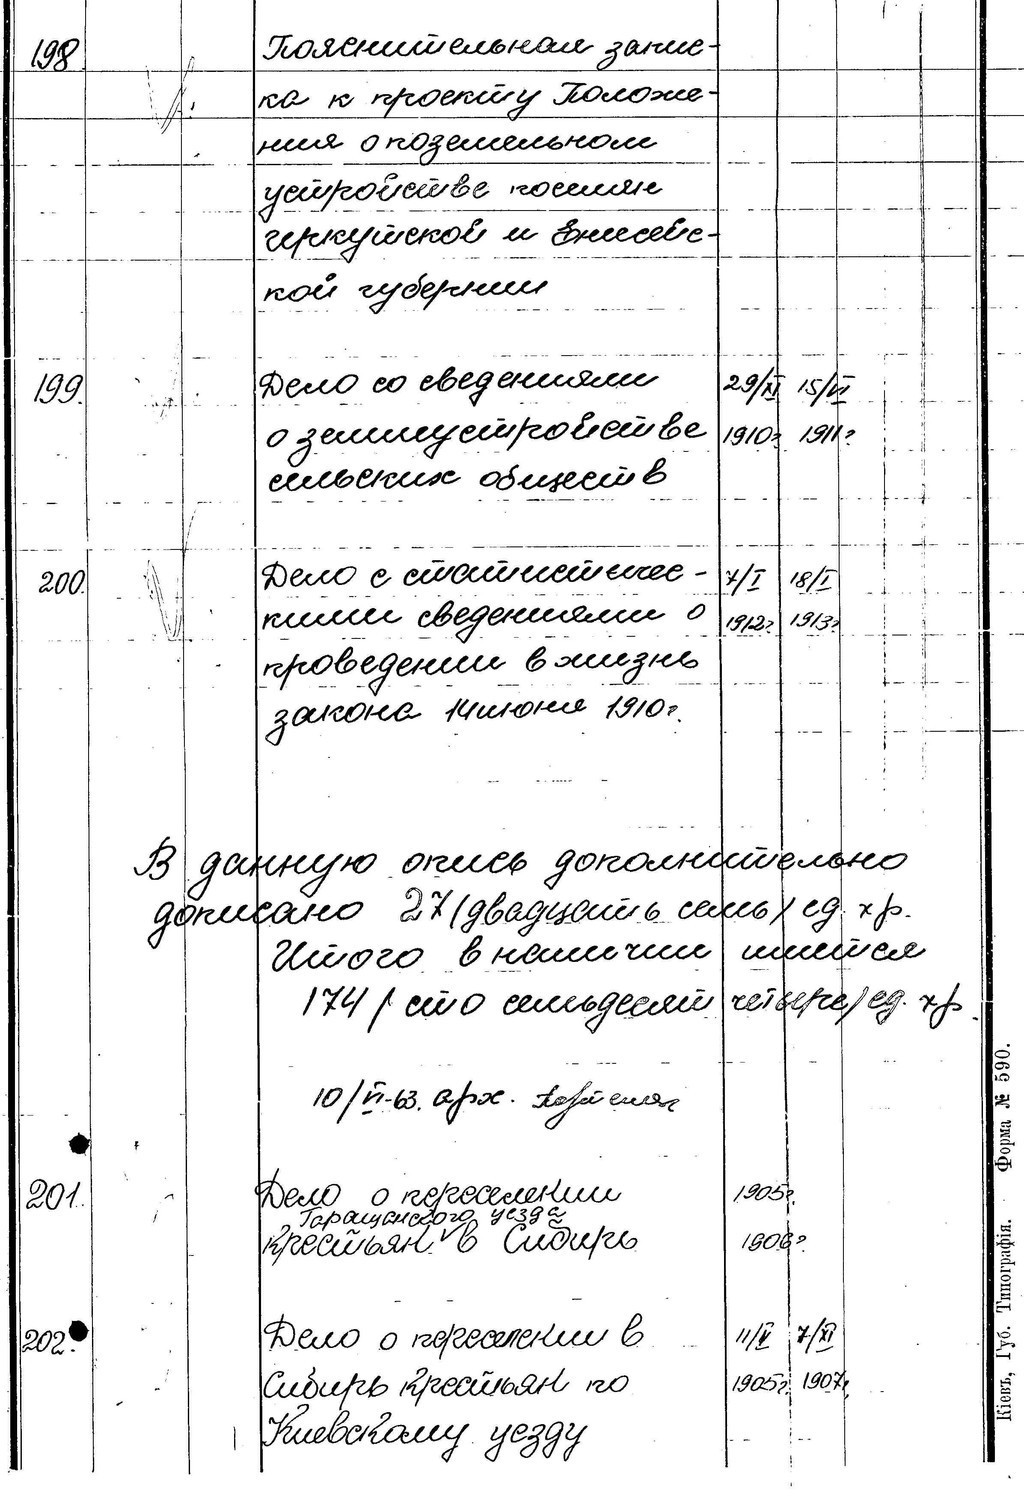 198. Пояснительная запис-
ка к проекту Положе-
ния о поземельном
устройстве поселян
Иркутской и Енисейс-
кой губернии
199. Дело со сведениями 29/XI 15/VI
о землеустройстве 1910г. 1911г.
сельских обществ
200. Дело с статистичес- 7/I 18/I
кими сведениями о 1912г. 1913г.
проведении в жизнь
закона 14 июня 1910г.
В данную опись дополнительно
дописано 27 /двадцать семь/ ед. хр.
Итого в наличии имеется
174 /сто семьдесят четыре/ ед. хр.
10/VI-63. арх.
201. Дело о переселении 1905г.
Таращанского уезда
крестьян V в Сибирь 1906г.
202. Дело о переселении в 11/V 7/XI
Сибирь крестьян по 1905г. 1907г.
Киевскому уезду
Кіевъ, Губ. Типографія. Форма № 590.